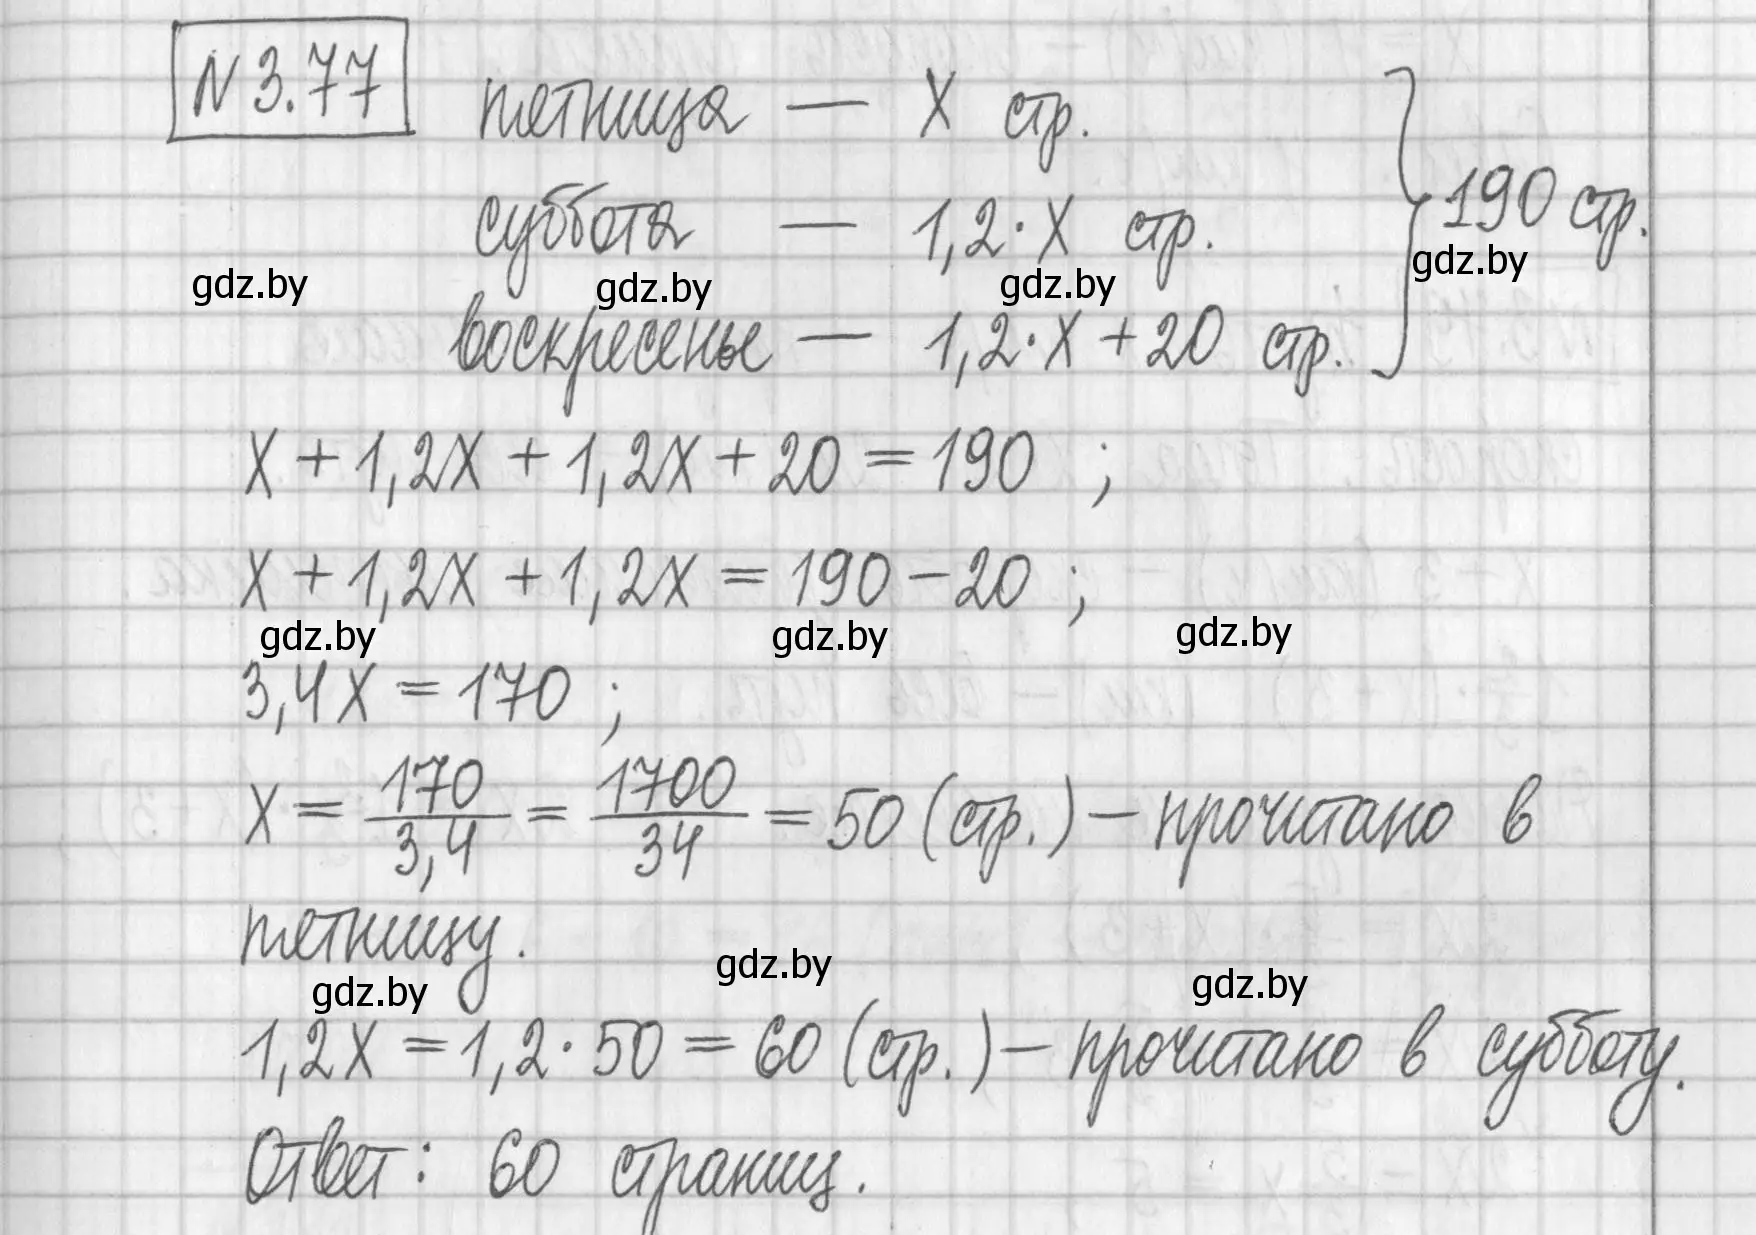 N 3.77
петница — X стр.
суббота — 1,2·X стр.
воскресенье — 1,2·X + 20 стр.
190 стр.
gdz.by gdz.by gdz.by gdz.by
X + 1,2X + 1,2X + 20 = 190 ;
X + 1,2X + 1,2X = 190 - 20 ;
gdz.by gdz.by gdz.by
3,4X = 170 ;
X = 170/3,4 = 1700/34 = 50 (стр.) - прочитано в
петницу.
gdz.by gdz.by gdz.by
1,2X = 1,2·50 = 60 (стр.) - прочитано в субботу.
Ответ: 60 страниц.